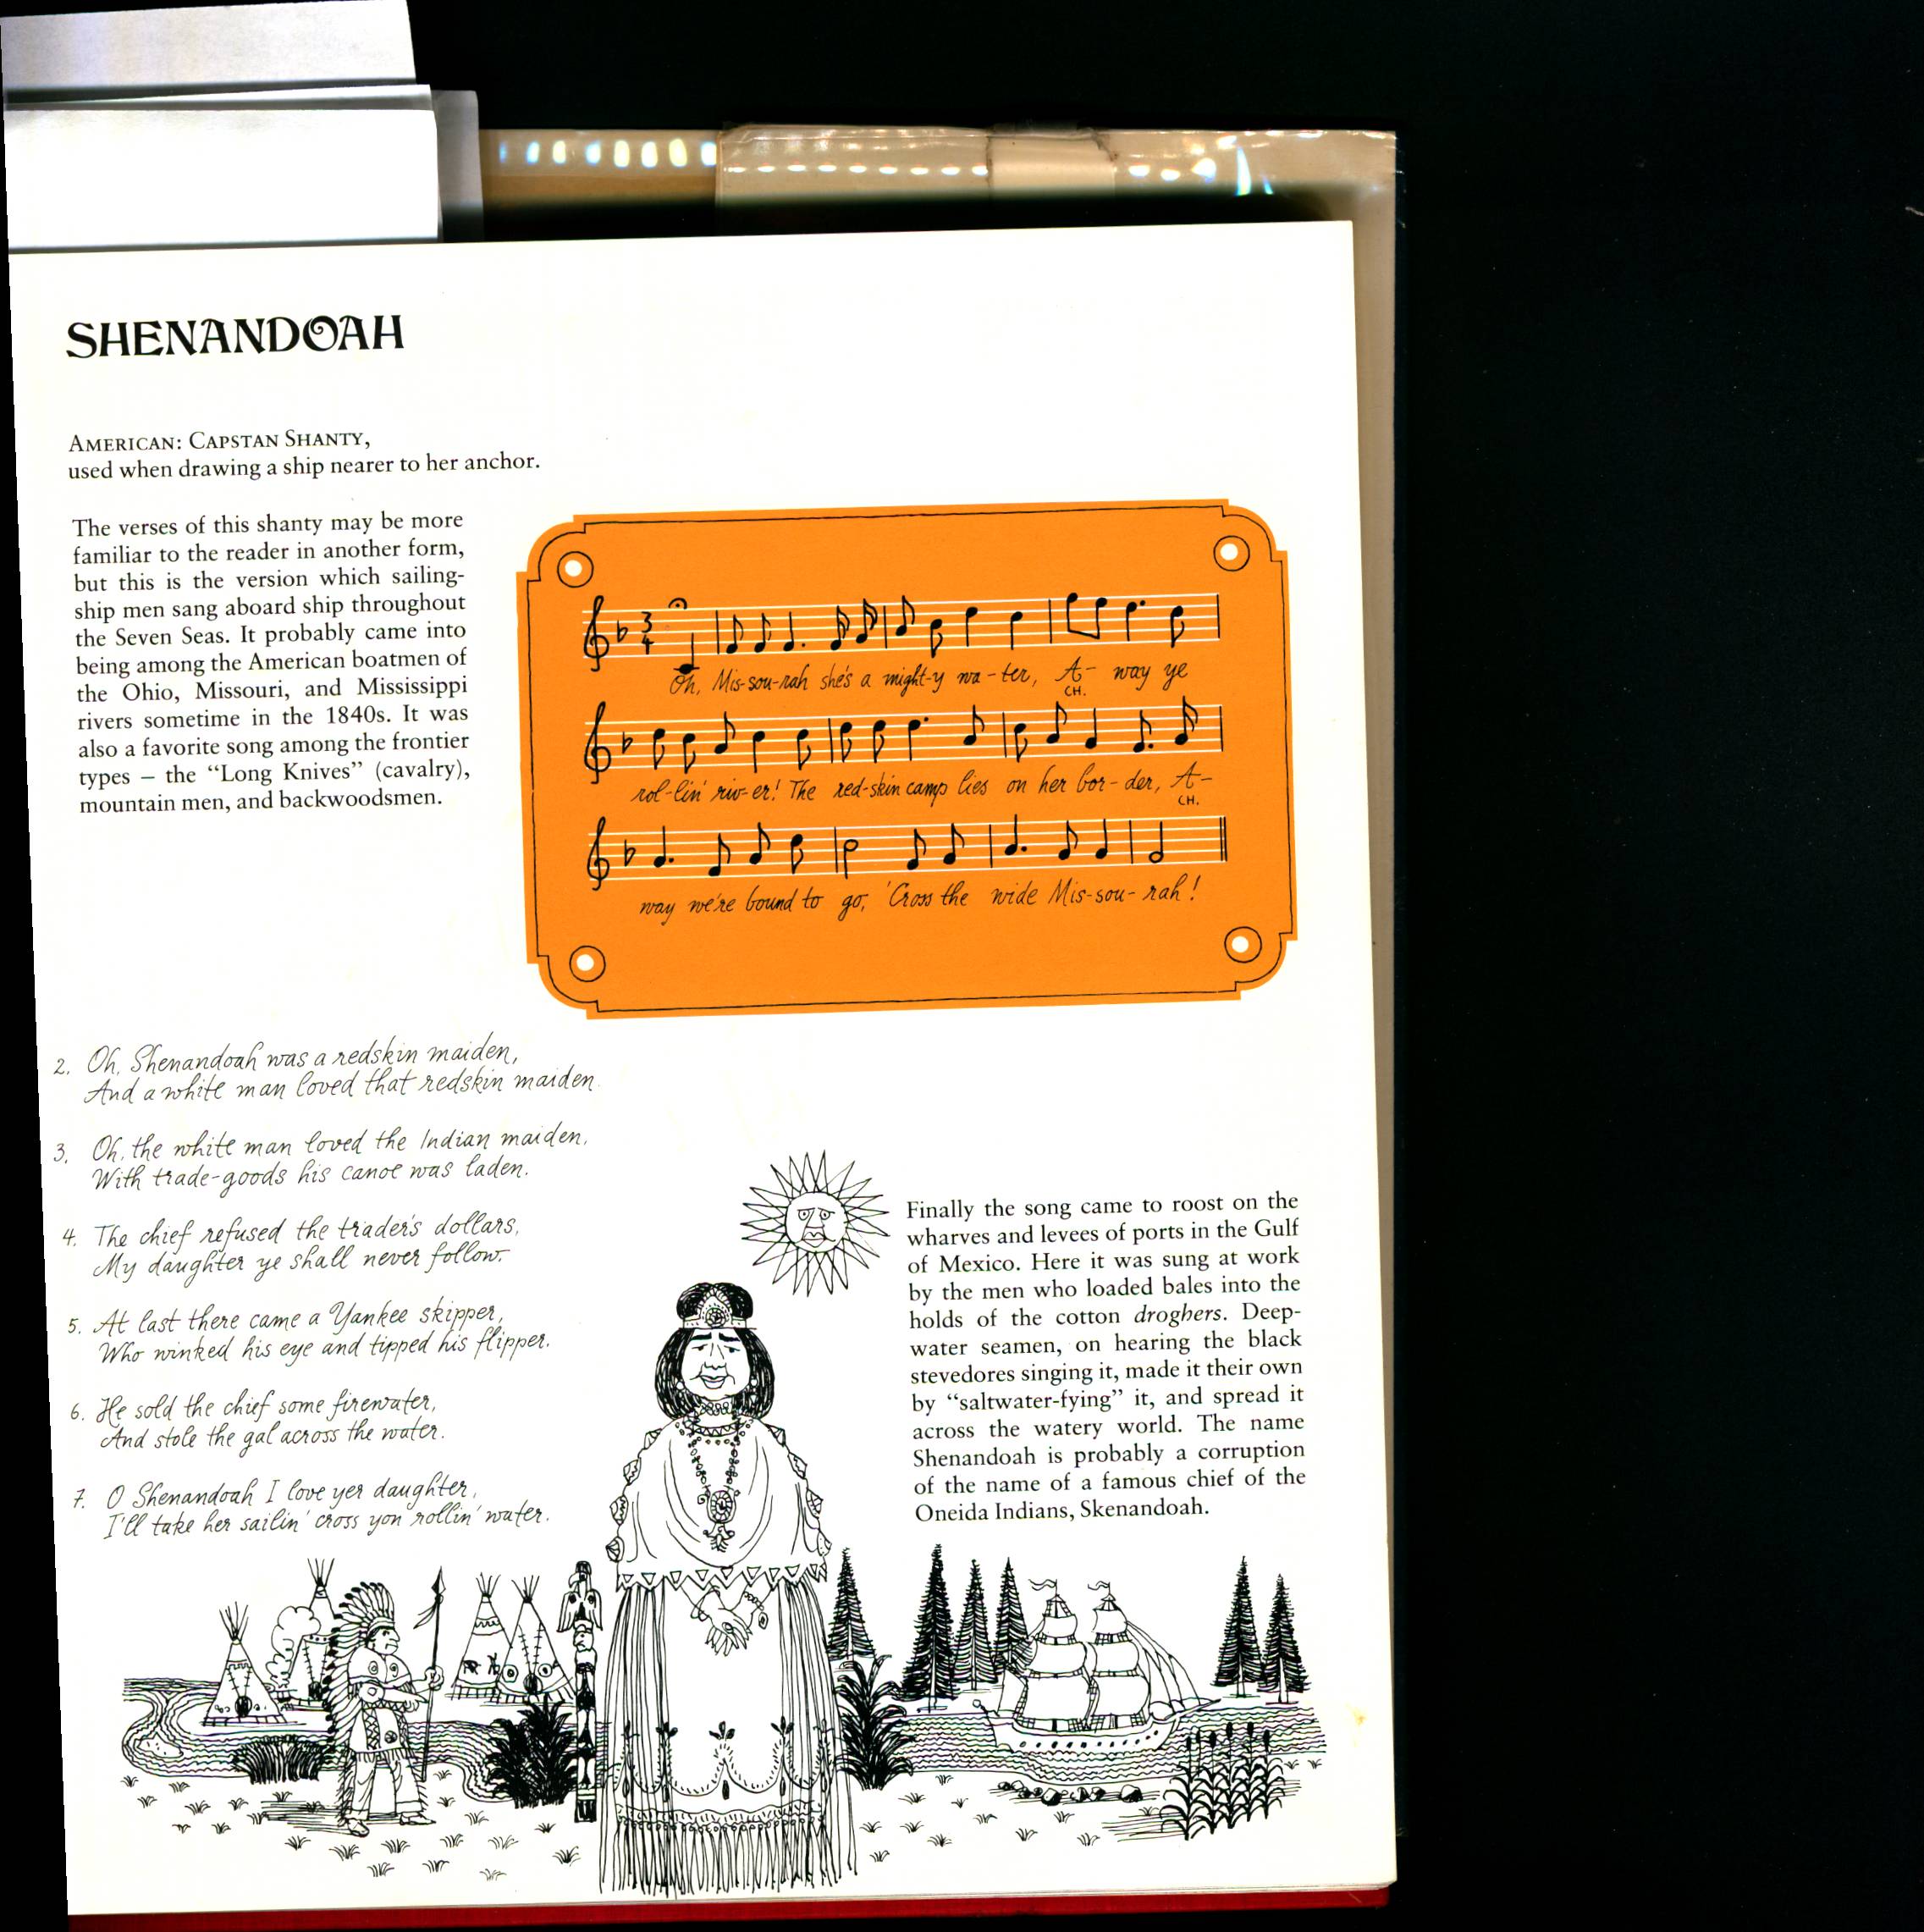 SHENANDOAH
AMERICAN: CAPSTAN SHANTY,
used when drawing a ship nearer to her anchor.
The verses of this shanty may be more
familiar to the reader in another form,
but this is the version which sailing-
ship men sang aboard ship throughout
the Seven Seas. It probably came into
being among the American boatmen of
the Ohio, Missouri, and Mississippi
rivers sometime in the 1840s. It was
also a favorite song among the frontier
types – the “Long Knives” (cavalry),
mountain men, and backwoodsmen.
3
4
Oh, Mis-sou-rah she's a might-y wa-ter, A- way ye
CH.
rol-lin' riv-er! The red-skin camp lies on her bor-der, A-
CH.
way we're bound to go, 'Cross the wide Mis-sou-rah!
2. Oh, Shenandoah was a redskin maiden,
And a white man loved that redskin maiden.
3. Oh, the white man loved the Indian maiden,
With trade-goods his canoe was laden.
4. The chief refused the trader's dollars,
My daughter ye shall never follow.
5. At last there came a Yankee skipper,
Who winked his eye and tipped his flipper.
6. He sold the chief some firewater,
And stole the gal across the water.
7. O Shenandoah I love yer daughter,
I'll take her sailin' cross yon rollin' water.
Finally the song came to roost on the
wharves and levees of ports in the Gulf
of Mexico. Here it was sung at work
by the men who loaded bales into the
holds of the cotton droghers. Deep-
water seamen, on hearing the black
stevedores singing it, made it their own
by “saltwater-fying” it, and spread it
across the watery world. The name
Shenandoah is probably a corruption
of the name of a famous chief of the
Oneida Indians, Skenandoah.